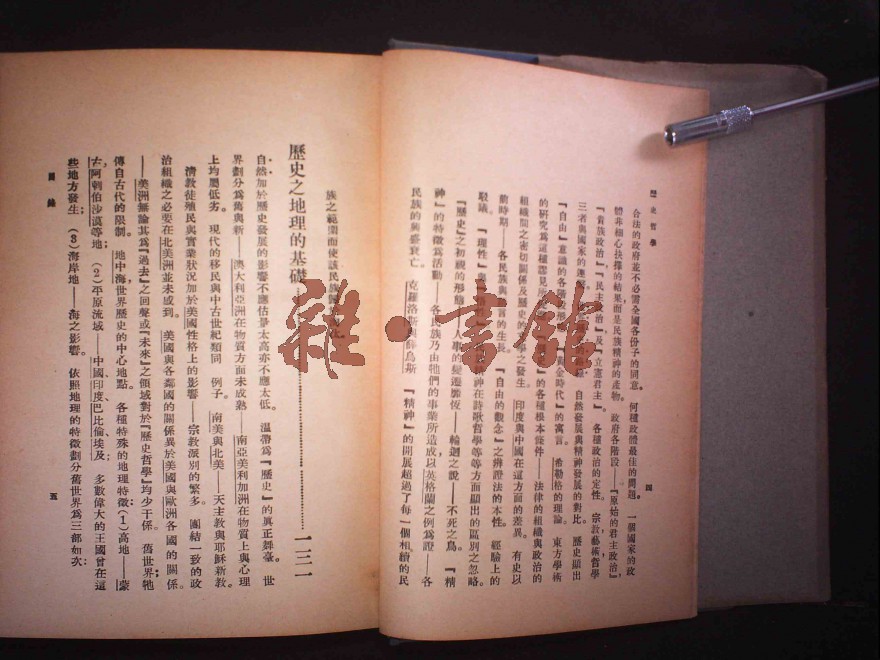 歷史哲學
四
合法的政府並不必需全國各份子的同意。 何種政體最佳的問題。 一個國家的政
體非細心抉擇的結果而是民族精神的產物。 政府各階段——『原始的君主政治』
『貴族政治』『民主政治』及『立憲君主』。 各種政治的定性。 宗教藝術哲學
三者與國家的連 自然發展與精神發展的對比。 歷史顯出
『自由』意識的各階段 金時代』的寓言。 希勒格的理論。 東方學術
的研究為這種謬見所 的各種根本條件——法律的組織與政治的
組織間之密切關係及歷史的 學之發生。 印度與中國在這方面的差異。 有史以
前時期——各民族與 言的生長。 『自由的觀念』之辨證法的本性。 經驗上的
駁議。 『理性』與 精神在詩歌哲學等等方面顯出的區別之忽略。
『歷史』之初視的形態 人事的變遷靡恆——輪迴之說——不死之鳥。 『精
神』的特徵為活動——各民族乃由牠們的事業所造成以英格蘭之例為證——各
民族的興盛衰亡。 克羅洛斯與薛烏斯 『精神』的開展超過了每一個相續的民
族之範圍而使該民族歸
歷史之地理的基礎……一三一
自然加於歷史發展的影響不應估量太高亦不應太低。 溫帶為『歷史』的真正舞臺。 世
界劃分為舊與新——澳大利亞洲在物質方面未成熟——南亞美利加洲在物質上與心理
上均屬低劣。 現代的移民與中古世紀類同 例子。 南美與北美——天主教與耶穌新教。
清教徒殖民與實業狀況加於美國性格上的影響——宗教派別的繁多。 團結一致的政
治組織之必要在北美洲並未感到。 美國與各鄰國的關係異於美國與歐洲各國的關係。
——美洲無論其為『過去』之回聲或『未來』之領域對於『歷史哲學』均少干係。 舊世界牠
傳自古代的限制。 地中海世界歷史的中心地點。 各種特殊的地理特徵(1)高地——蒙
古阿剌伯沙漠等地；(2)平原流域——中國印度巴比倫埃及 多數偉大的王國曾在這
些地方發生；(3)海岸地——海之影響。 依照地理的特徵劃分舊世界為三部如次：
目錄
五
雜·書館